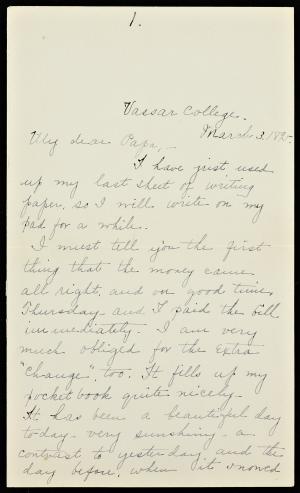 1.
Vassar College.
March 3, 1895.
My dear Papa,-
I have just used
up my last sheet of writing
paper, so I will write on my
pad for a while.
I must tell you the first
thing that the money came
all right, and on good time
Thursday and I paid the bill
immediately. I am very
much obliged for the extra
"change", too. It fills up my
pocket book quite nicely.
It has been a beautiful day
to-day - very sunshiny - a
contrast to yesterday, and the
day before, when it snowed